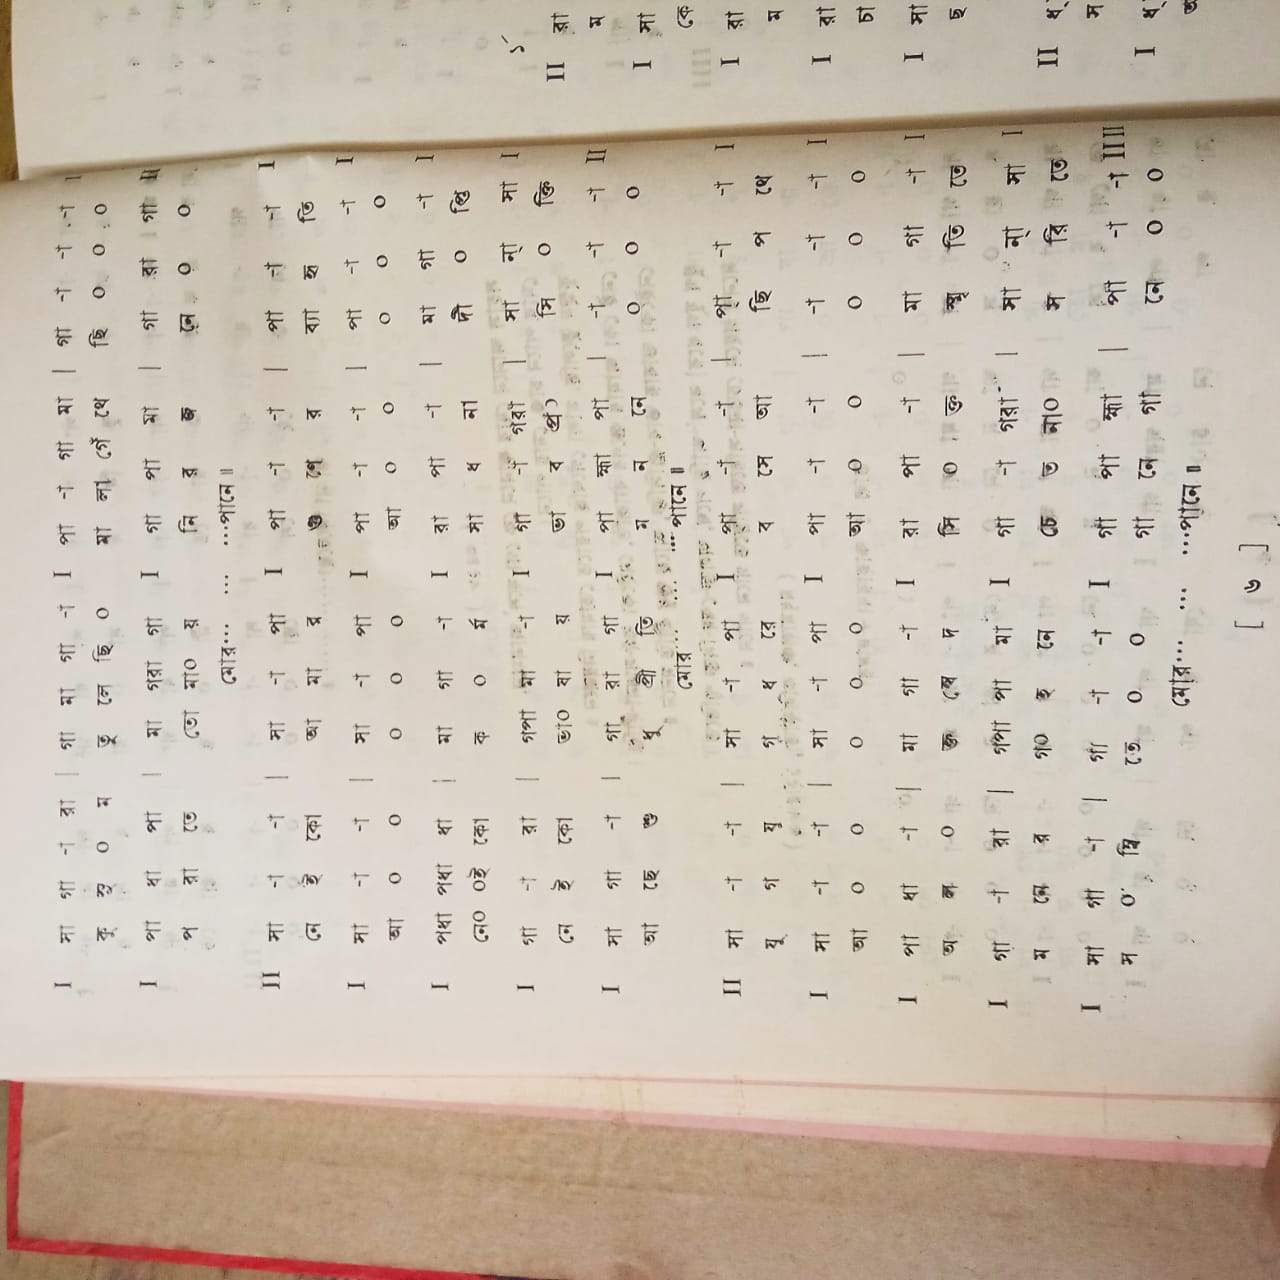 I সা গা -া রা | গা মা গা -া I পা -া গা মা | গা -া -া -া I
কু সু ০ ম তু লে ছি ০ মা লা গেঁ থে ছি ০ ০ ০
I পা ধা পা | মা গরা গা I গা পা মা | গা রা গা II
প রা তে তো মা০ য় নি র জ নে ০ ০
মোর... ... ...পানে॥
II সা -া -া | সা -া পা I পা -া -া | পা -া -া I
নে ই কো আ মা র গু ণে র ব্যা হৃ তি
I সা -া -া | সা -া পা I পা -া -া | পা -া -া I
আ ০ ০ ০ ০ ০ আ ০ ০ ০ ০ ০
I পধা পধা ধা | মা গা -া I রা পা -া | মা গা -া I
নে০ ০ই কো ক ০ র্ম সা ধ না দী ০ প্তি
I গা -া রা | গপা মা -া I গা -া গরা | সা ন্া সা I
নে ই কো ভা০ ষা য় ভা ব প্র) সি ০ ক্তি
I সা গা -া | গা রা গা I পা হ্মা পা | -া -া -া II
আ ছে শু ধু প্রী তি ম ন নে ০ ০ ০
মোর... ... ...পানে॥
II সা -া -া | সা -া পা I পা -া -া | পা -া -া I
যু গ যু গ ধ রে ব সে আ ছি প থে
I সা -া -া | সা -া পা I পা -া -া | -া -া -া I
আ ০ ০ ০ ০ ০ আ ০ ০ ০ ০ ০
I পা ধা -া | মা গা -া I রা পা -া | মা গা -া I
অ ল ০ ক্ত দ সি ০ ক্ত স্মৃ তি তে
I গা -া রা | গপা পা মা I গা -া গরা | সা ন্া সা I
ম নে র গ০ হ নে চে ত না০ স রি তে
I সা গা -া | গা -া -া I গা পা হ্মা | পা -া -া II II
স ০ ম্বি তে ০ ০ গা নে গা নে ০ ০
মোর... ... ...পানে॥
[ ৬ ]
II রা
ম
I সা
কে
I রা
ম
I রা
চা
I সা
ছ
II
ম
I